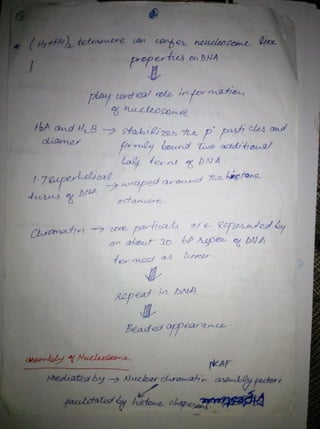 (H3+H4)2 tetramere can confer neucleosome like
properties on DNA
play central role in formation
of nucleosome
H2A and H2B → stabilizes the pi particles and
diamer firmly bound Two additional
half terns of DNA.
1.75 superhelical
turns of DNA → wraped around the histone
octamere
Chromatin → core particals are seperated by
an about 30 bP region of DNA
termed as linker.
repeat in DNA
Beaded appearance
asembly of Nucleosome
NCAF
Mediated by → Nuclear chromatin asembly factore
facilitated by histone chaperons.